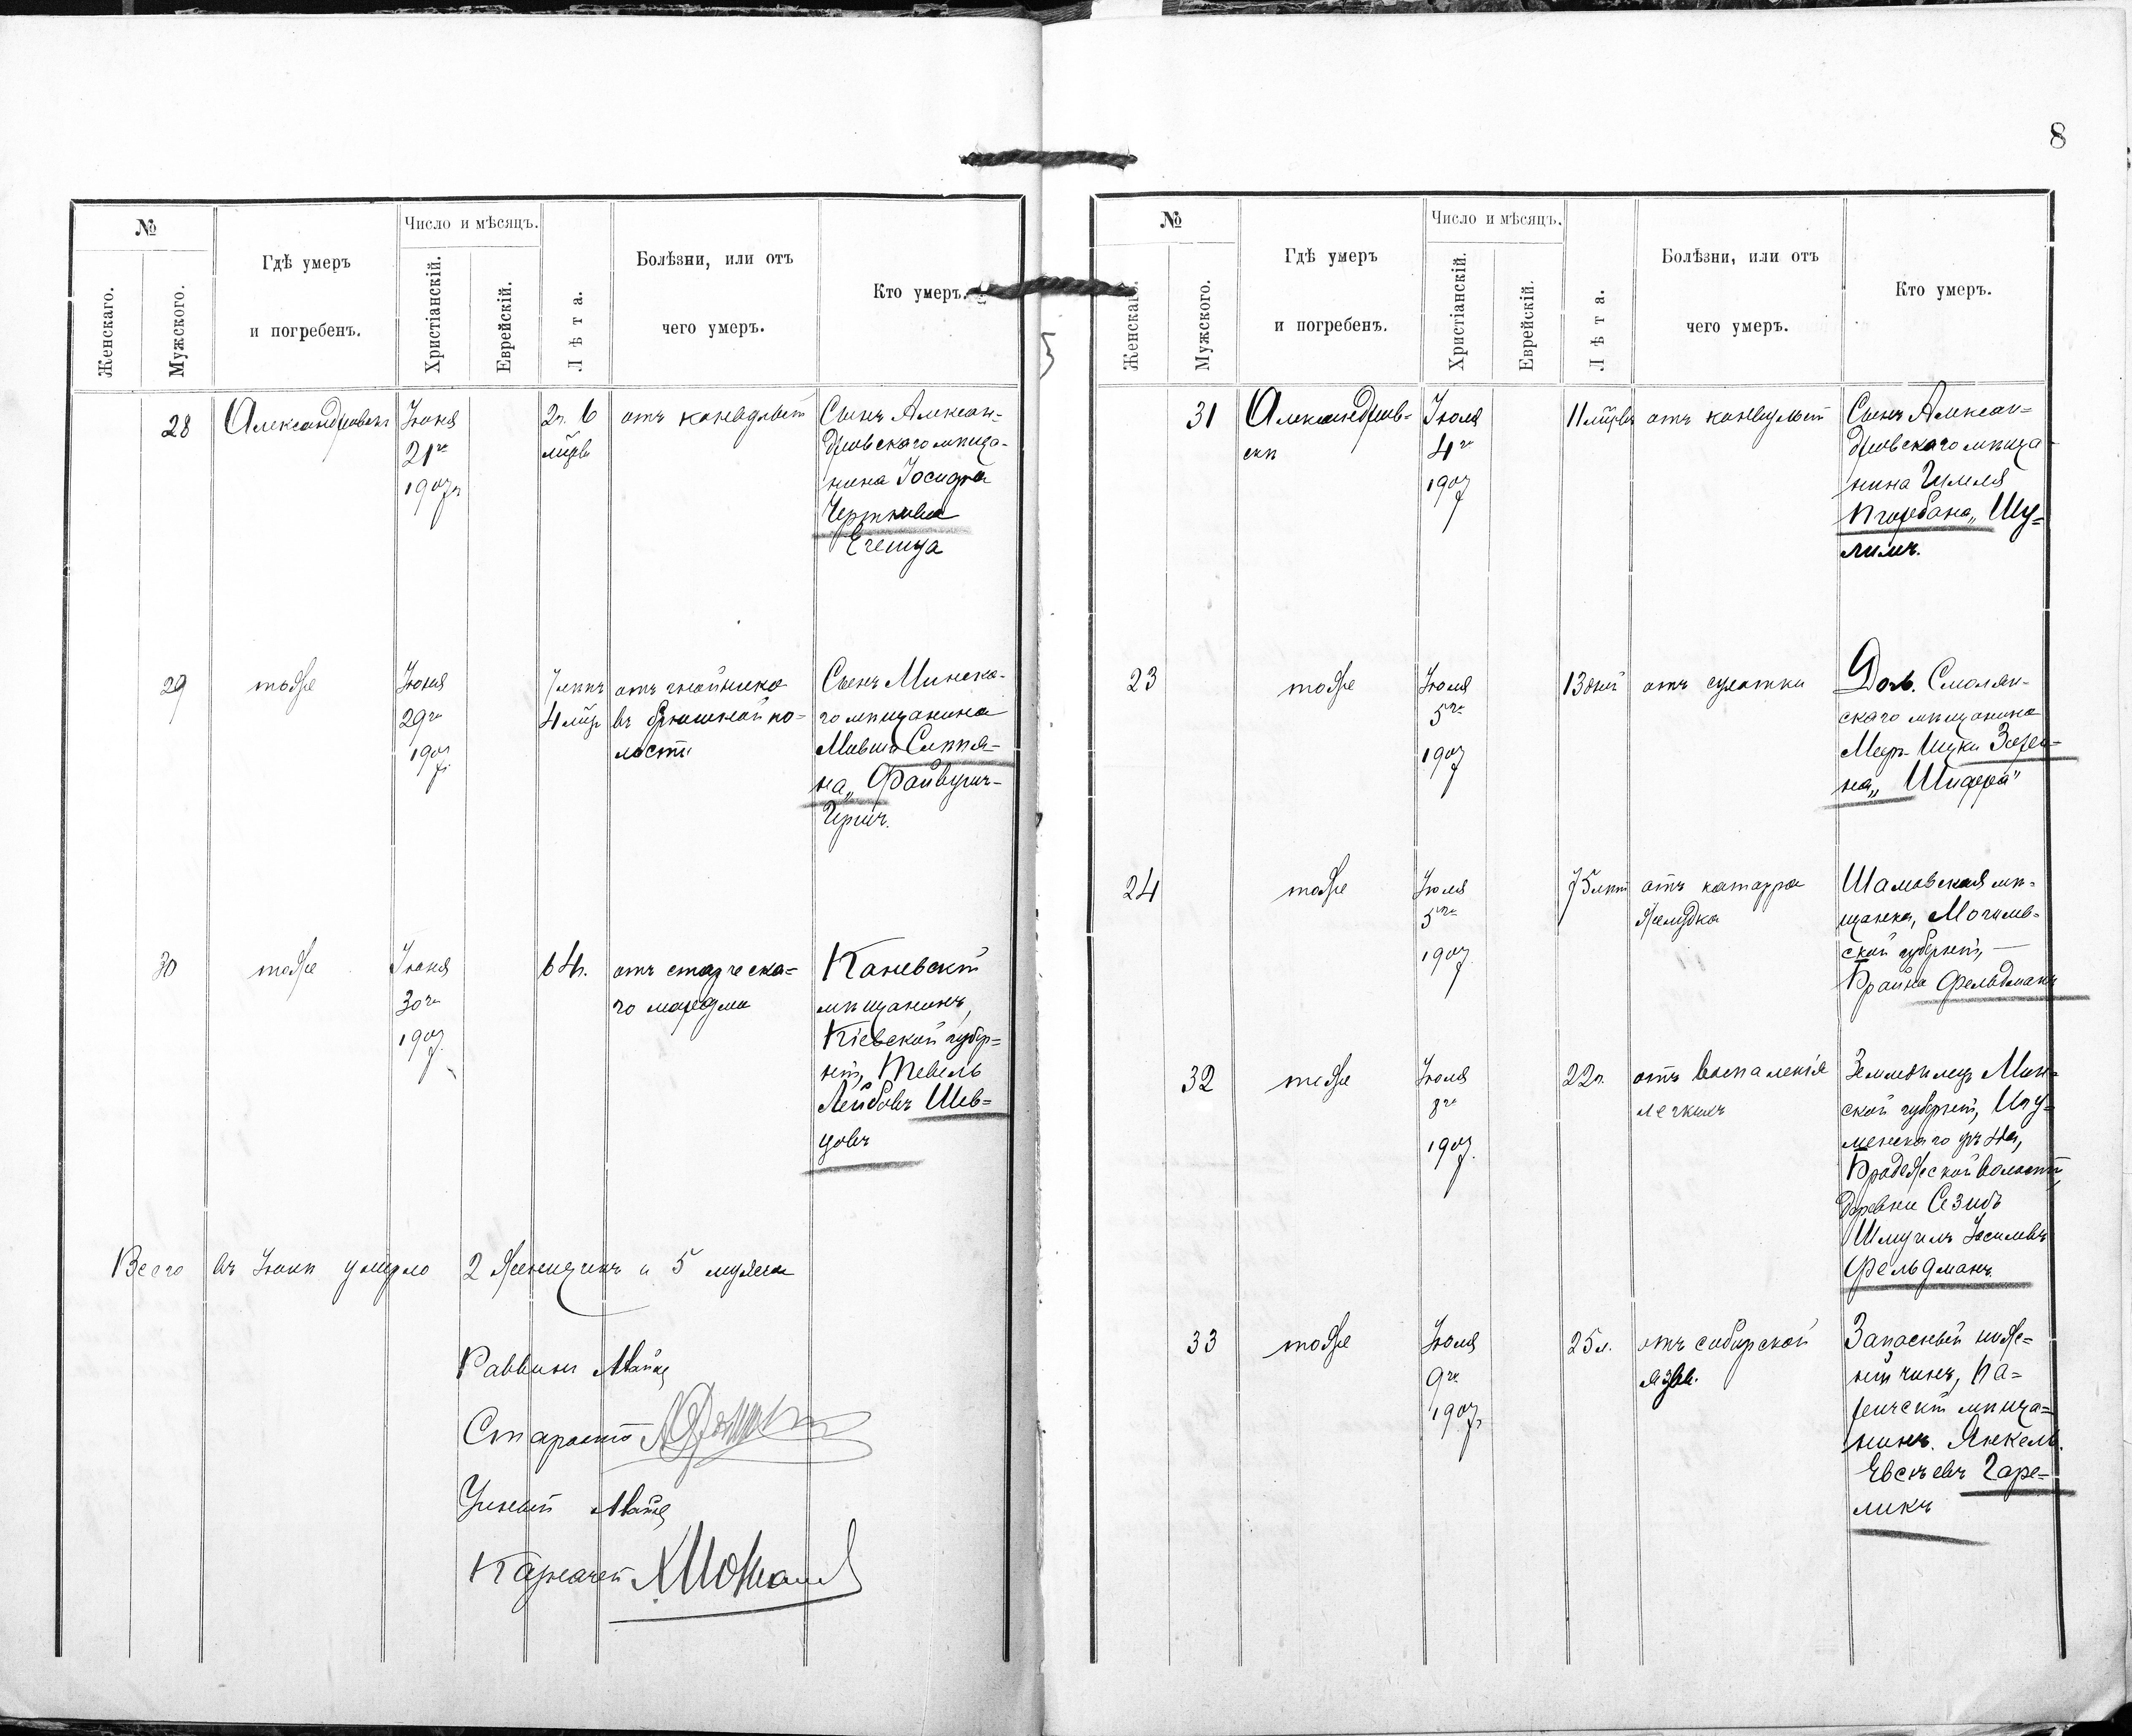 8
№
Женскаго.
Мужского.
Гдѣ умеръ
и погребенъ.
Число и мѣсяцъ.
Христіанскій.
Еврейскій.
Лѣта.
Болѣзни, или отъ
чего умеръ.
Кто умеръ.
28
Александровскъ
Іюня
21го
1907г
2г. 6
мѣсц
отъ конвульсій
Сынъ Алексан-
дровскаго мѣща-
нина Іосифа
Черткова
29
тоже
Іюня
29го
1907г.
7 лѣтъ
4 мѣс
отъ гнойника
въ брюшной по-
лости
Сынъ Минска-
го мѣщанина
Мовша Слѣпя-
на, Файвушъ-
Гиршъ.
30
тоже
Іюня
30го
1907.
64г.
отъ старческа-
го маразма
Каневскій
мѣщанинъ,
Кіевской губер-
ніи, Тевель
Лейбовъ Шев-
цовъ
Всего въ Іюнѣ умерло 2 женщинъ и 5 мужска
Раввинъ
Староста
Ученый
Казначей
№
Женскаго.
Мужского.
Гдѣ умеръ
и погребенъ.
Число и мѣсяцъ.
Христіанскій.
Еврейскій.
Лѣта.
Болѣзни, или отъ
чего умеръ.
Кто умеръ.
31
Александров-
скѣ
Іюля
4го
1907
11 мѣсцв
отъ конвульсій
Сынъ Алексан-
дровскаго мѣща-
нина
Шу-
лимъ.
23
тоже
Іюля
5го
1907
13 дней
отъ сухотки
Дочь Смолян-
скаго мѣщанина
на "Шифра"
24
тоже
Іюля
5го
1907
75 лѣтъ
отъ катарра
желудка
Шамовская мѣ-
щанка, Могилев-
ской губерніи, —
Брайна Фельдманъ
32
тоже
Іюля
8го
1907.
22г.
отъ воспаленія
легкихъ
Земледѣлецъ Мин-
ской губерніи, Игу-
менскаго уѣзда,
Бродецской волости,
деревни Сезибъ
Шмуилъ Іосилевъ
Фельдманъ
33
тоже
Іюля
9го
1907г
25л.
отъ сибирской
язвы.
Запасный ниж-
ній чинъ, Па-
ричскій мѣща-
нинъ. Янкель
Евсѣевъ Горе-
ликъ